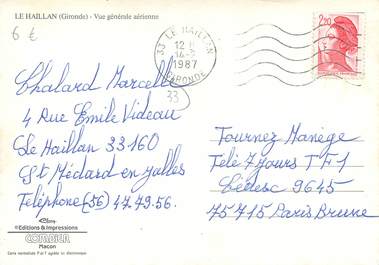 LE HAILLAN (Gironde) - Vue générale aérienne
6 €
33 LE HAILLAN
12 H
14-3
1987
GIRONDE
33
2,20
Chalard Marcelle
4 Rue Emile Videau
Le Haillan 33160
St Médard en Jalles
Téléphone (56) 47.49.56.
Tournez Manege
Télé 7 Jours TF1
Cédesc 9645
75715 Paris Brune
Editions & Impressions
COMBIER
Macon